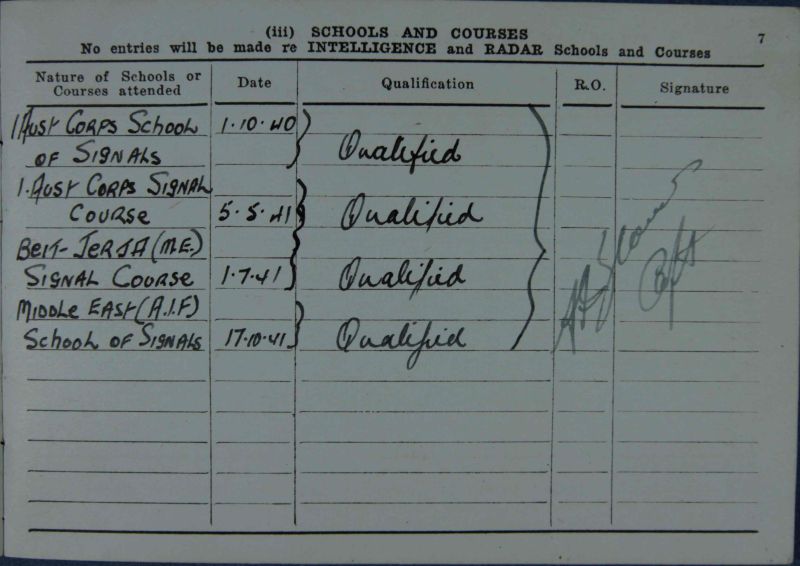 (iii) SCHOOLS AND COURSES
7
No entries will be made re INTELLIGENCE and RADAR Schools and Courses
Nature of Schools or Courses attended Date Qualification R.O. Signature
1 Aust Corps School 1·10·40
of Signals Qualified
1. Aust Corps Signal
Course 5·5·41 Qualified
Beit-Jerja (M.E.)
Signal Course 1·7·41 Qualified
Middle East (A.I.F)
School of Signals 17·10·41 Qualified
Capt